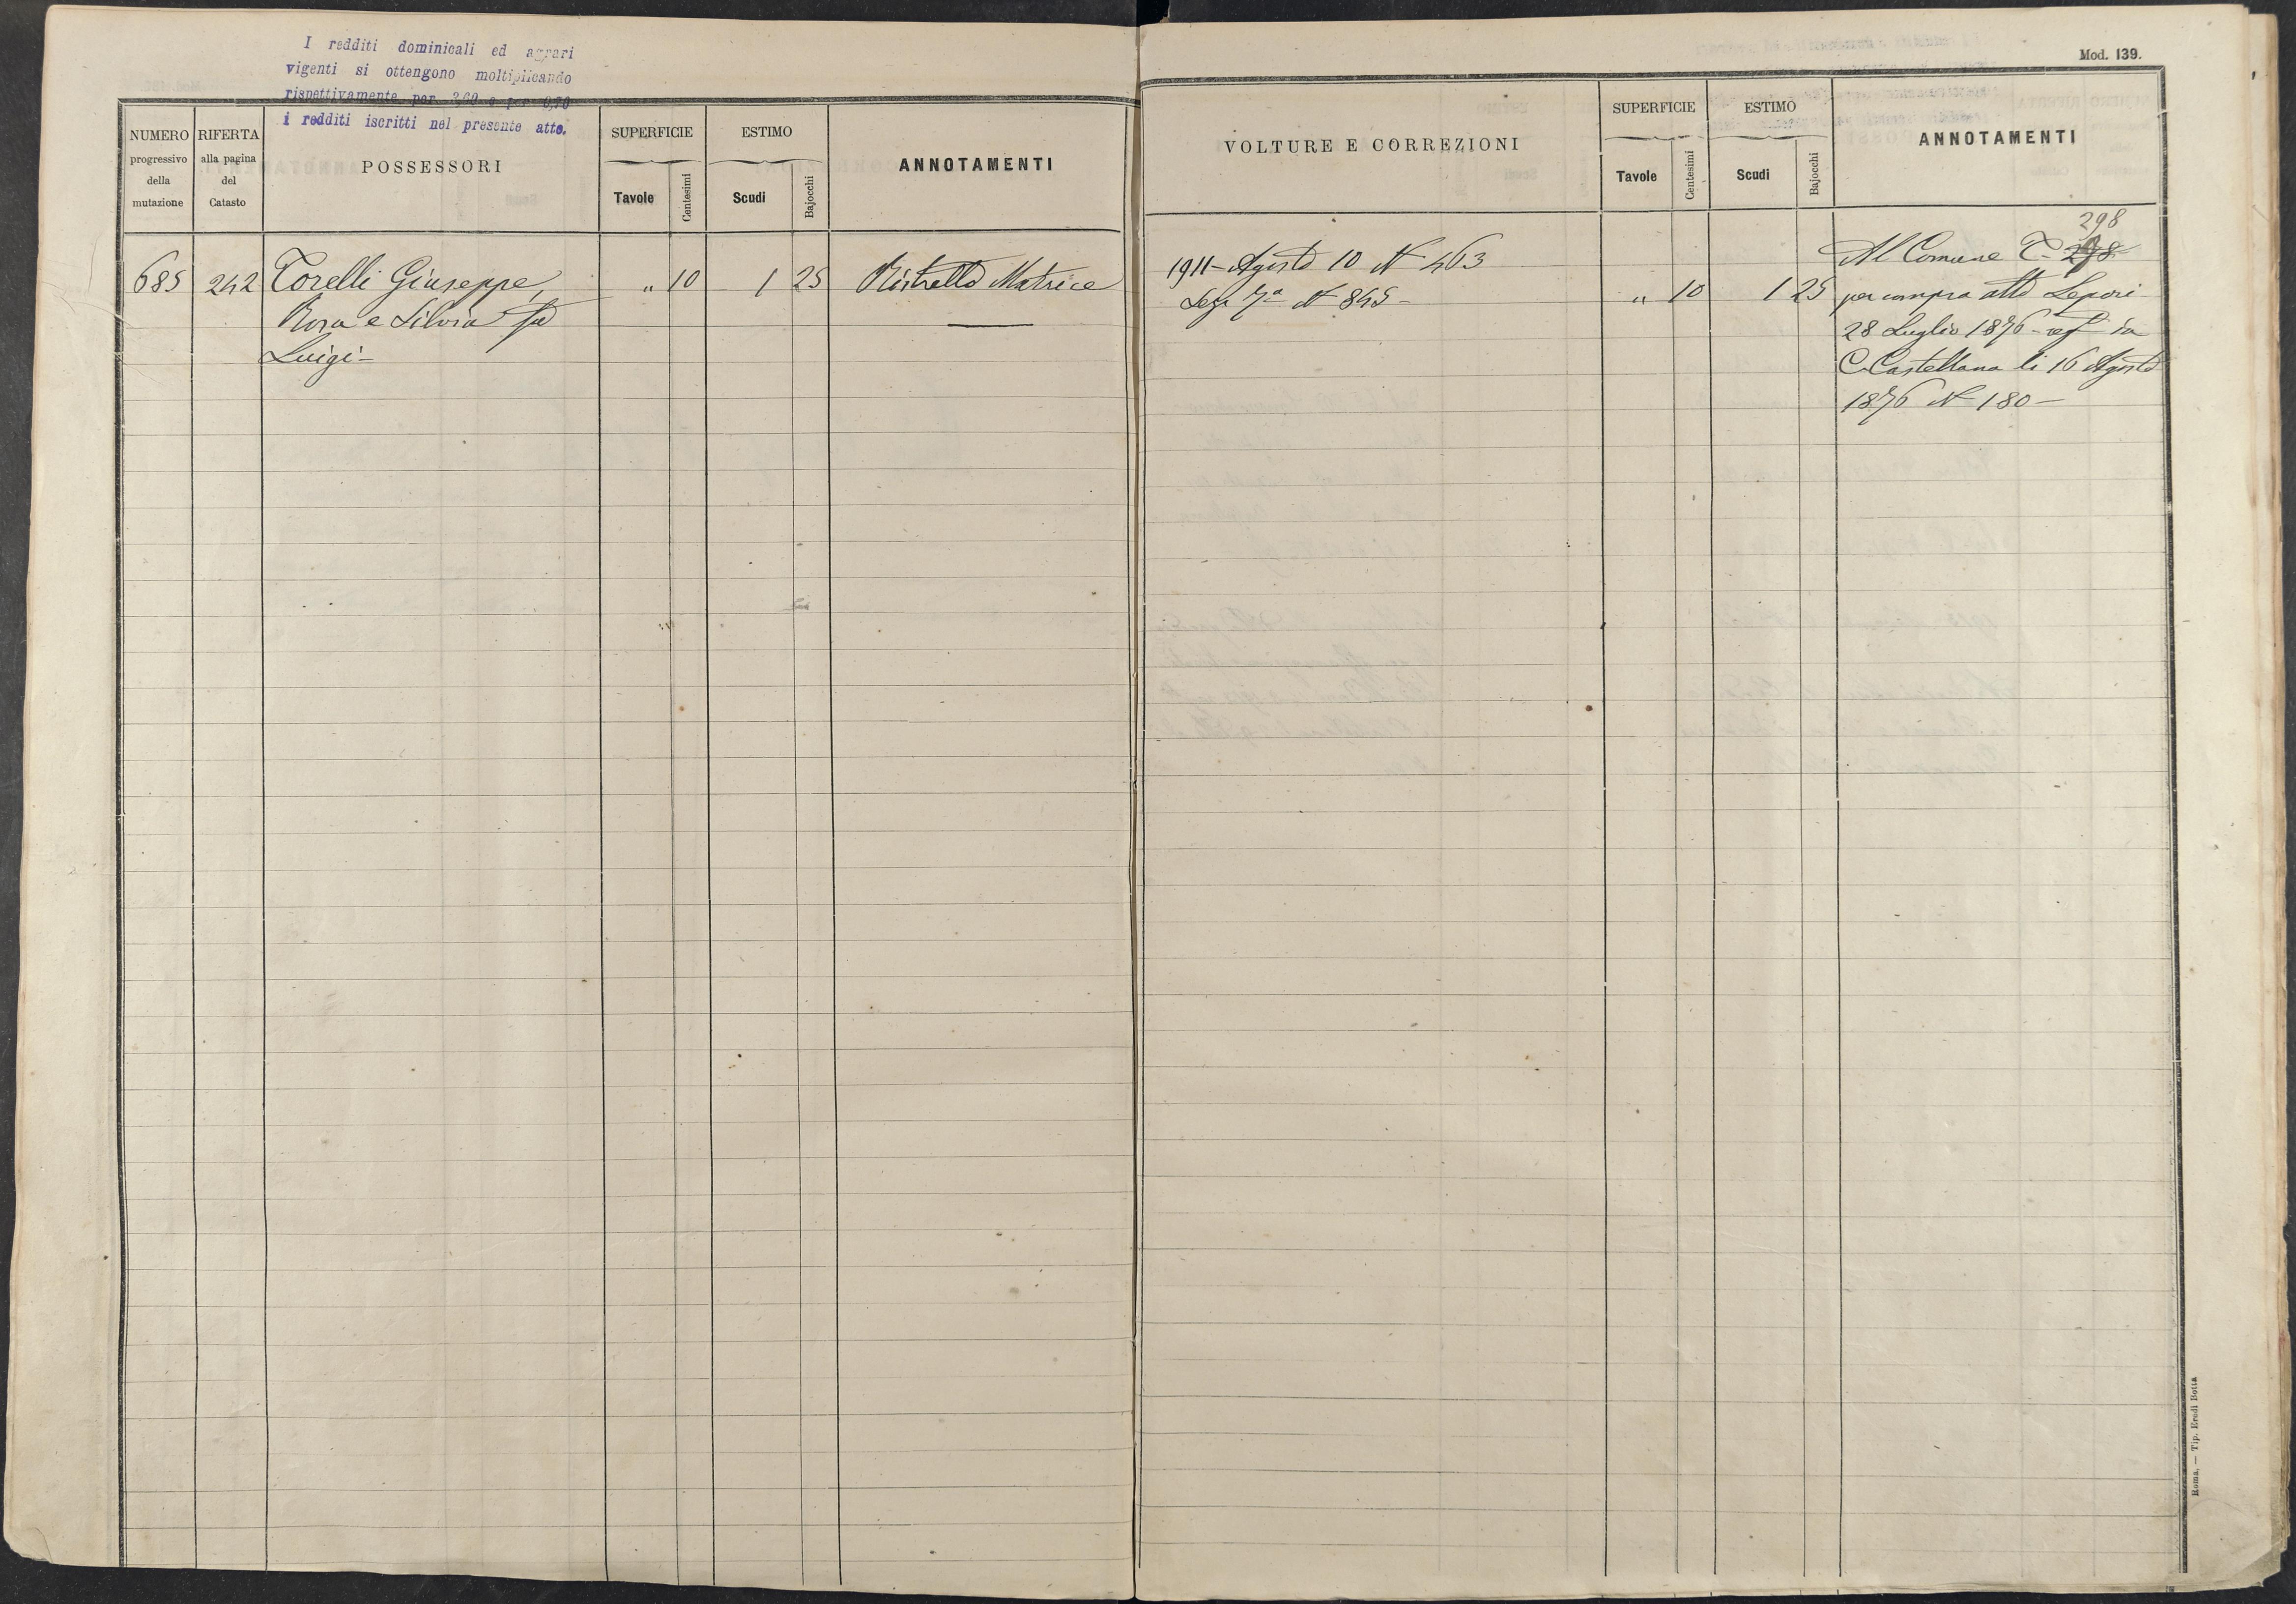 I redditi dominicali ed agrari
vigenti si ottengono moltiplicando
rispettivamente per 3,60 e per 0,70
i redditi iscritti nel presente atto.
NUMERO
progressivo
della
mutazione
RIFERTA
alla pagina
del
Catasto
POSSESSORI
SUPERFICIE
Tavole
Centesimi
ESTIMO
Scudi
Bajocchi
ANNOTAMENTI
685 242 Torelli Giuseppe, „ 10 1 25 Ristretto Matrice
Rosa e Silvia fu
Luigi-
Mod. 139.
VOLTURE E CORREZIONI
SUPERFICIE
Tavole
Centesimi
ESTIMO
Scudi
Bajocchi
ANNOTAMENTI
298
1911- Agosto 10 N 463 Al Comune T- 298
7a N 845- „ 10 1 25 per compra atto Lepori
28 Luglio 1876- reg in
C. Castellana li 16 Agosto
1876 N 180-
Roma, — Tip. Eredi Botta